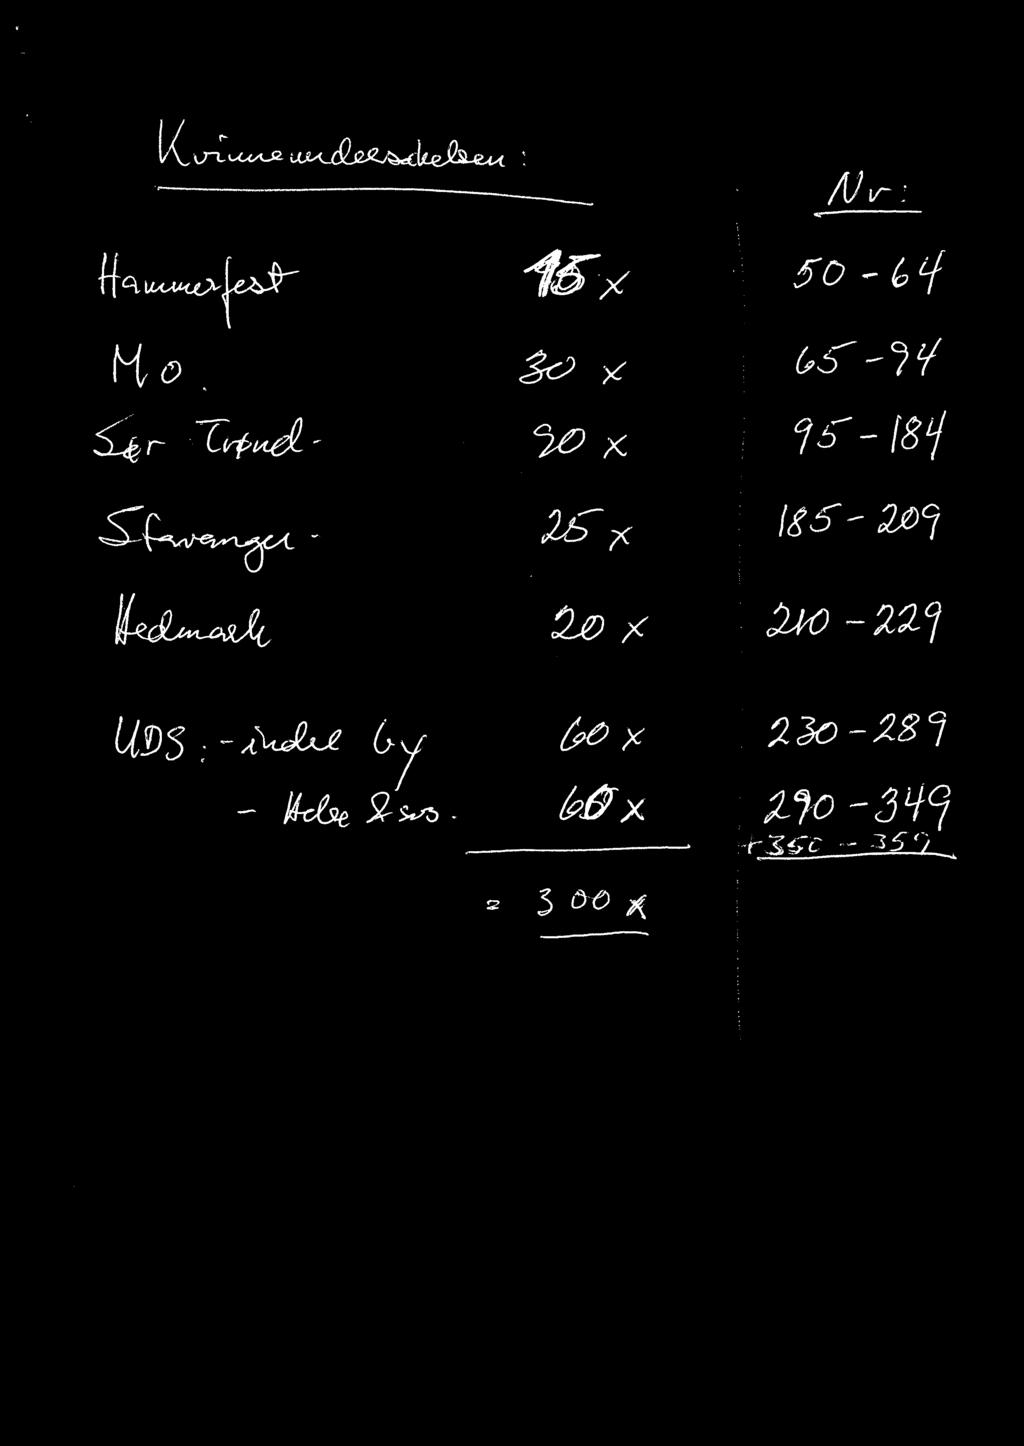 Kvinneundersøkelsen:
Nr:
Hammerfest 15 x 50-64
Mo. 30 x 65-94
Sør Trønd- 90 x 95-184
Stavanger - 25 x 185-209
Hedmark 20 x 210-229
UDS: - indre by 60 x 230-289
- Helse & sos. 60 x 290-349
+350-359
= 300 x